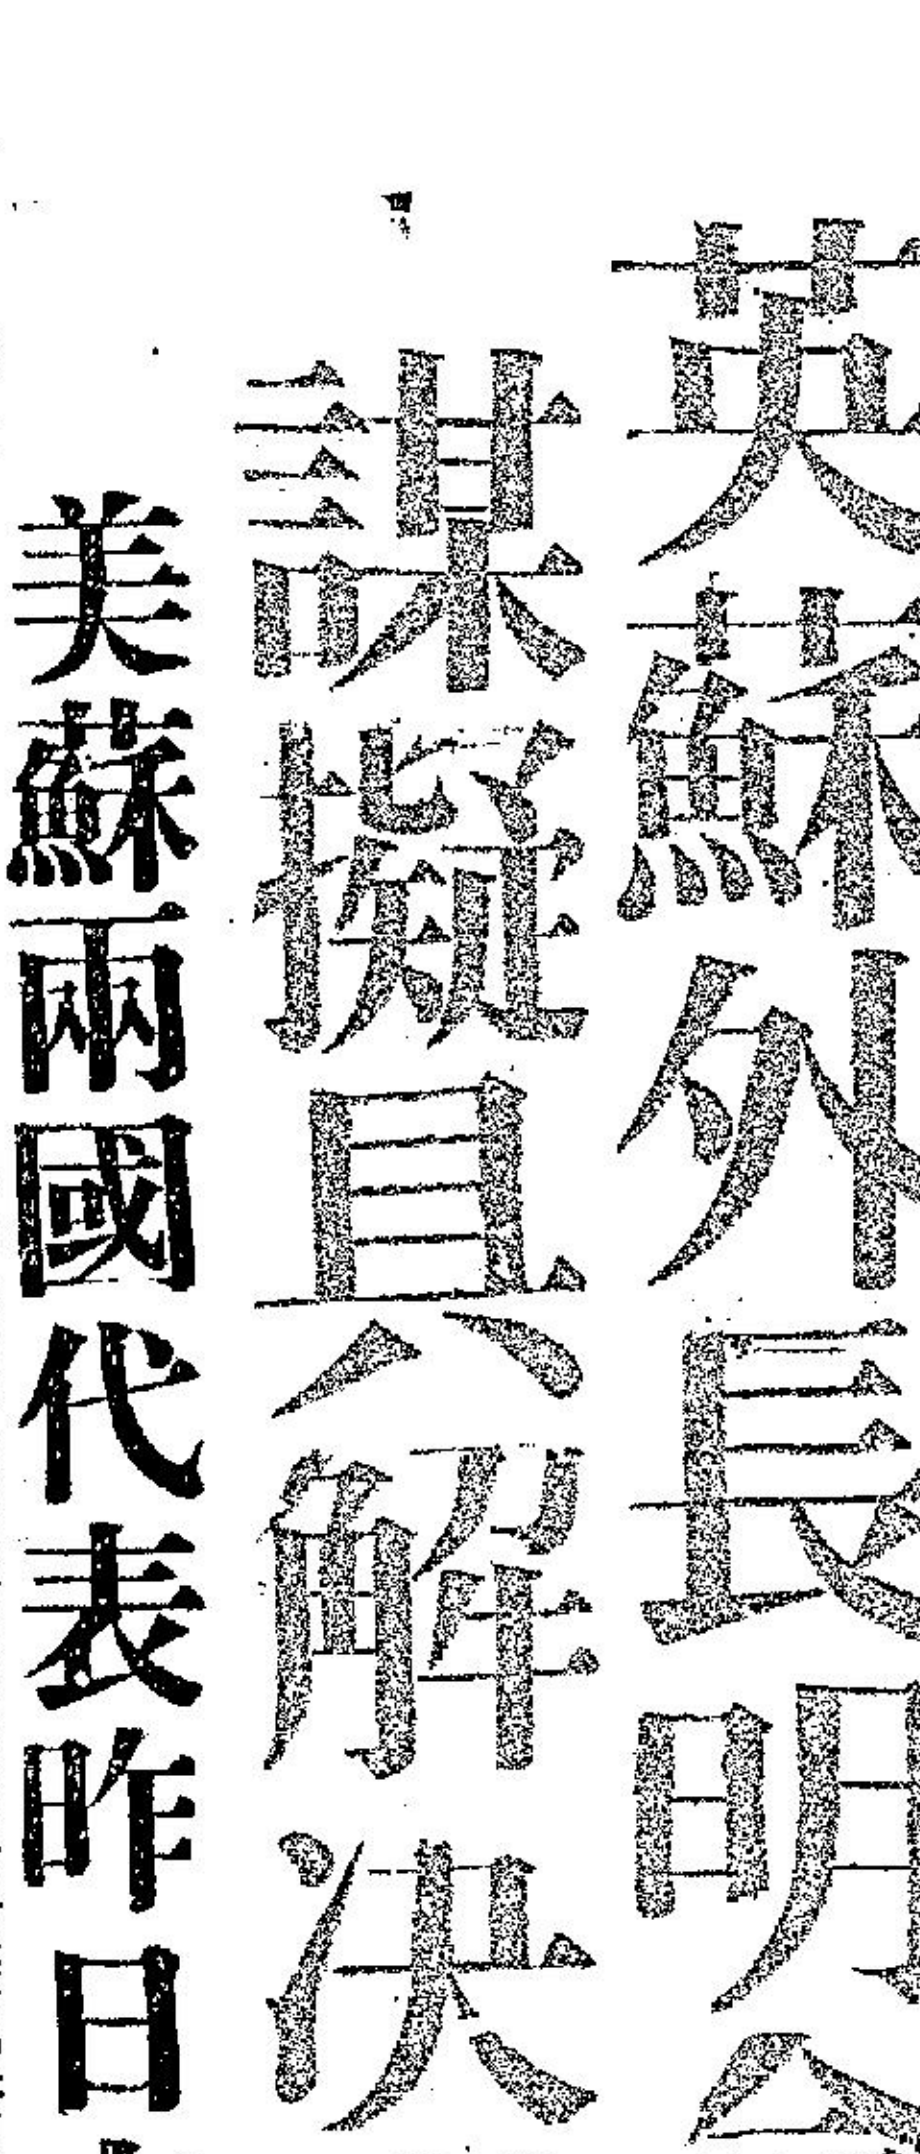 英蘇外長明
謀擬具解决
美蘇兩國代表昨日